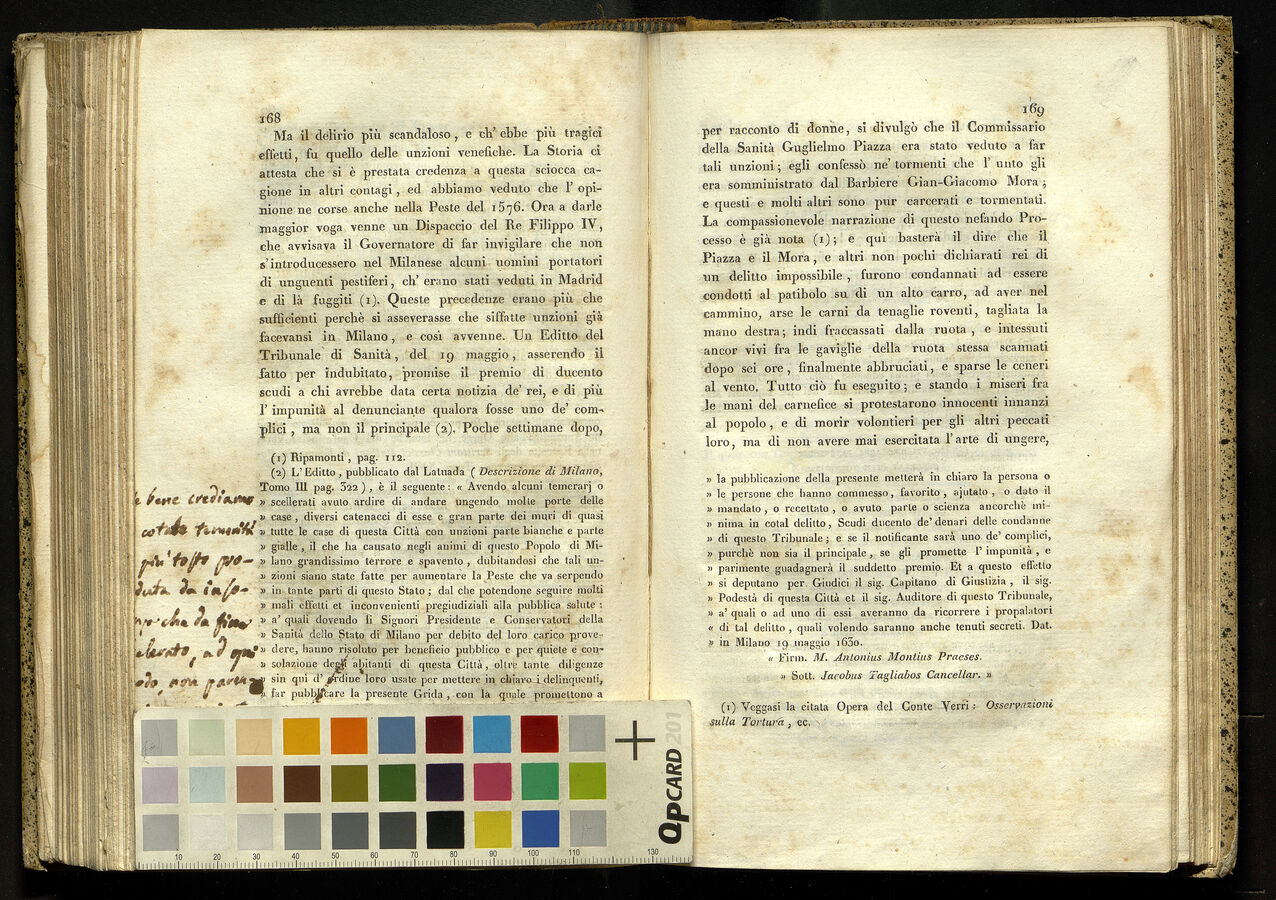 168
Ma il delirio più scandaloso, e ch' ebbe più tragici
effetti, fu quello delle unzioni venefiche. La Storia ci
attesta che si è prestata credenza a questa sciocca ca-
gione in altri contagi, ed abbiamo veduto che l' opi-
nione ne corse anche nella Peste del 1576. Ora a darle
maggior voga venne un Dispaccio del Re Filippo IV,
che avvisava il Governatore di far invigilare che non
s'introducessero nel Milanese alcuni uomini portatori
di unguenti pestiferi, ch' erano stati veduti in Madrid
e di là fuggiti (1). Queste precedenze erano più che
sufficienti perchè si asseverasse che siffatte unzioni già
facevansi in Milano, e così avvenne. Un Editto del
Tribunale di Sanità, del 19 maggio, asserendo il
fatto per indubitato, promise il premio di ducento
scudi a chi avrebbe data certa notizia de' rei, e di più
l' impunità al denunciante qualora fosse uno de' com-
plici, ma non il principale (2). Poche settimane dopo,
(1) Ripamonti, pag. 112.
(2) L' Editto, pubblicato dal Latuada (Descrizione di Milano,
Tomo III pag. 322), è il seguente: « Avendo alcuni temerarj o
» scellerati avuto ardire di andare ungendo molte porte delle
» case, diversi catenacci di esse e gran parte dei muri di quasi
» tutte le case di questa Città con unzioni parte bianche e parte
» gialle, il che ha causato negli animi di questo Popolo di Mi-
» lano grandissimo terrore e spavento, dubitandosi che tali un-
» zioni siano state fatte per aumentare la Peste che va serpendo
» in tante parti di questo Stato; dal che potendone seguire molti
» mali effetti et inconvenienti pregiudiziali alla pubblica salute:
» a' quali dovendo li Signori Presidente e Conservatori della
» Sanità dello Stato di Milano per debito del loro carico prove-
» dere, hanno risoluto per beneficio pubblico e per quiete e con-
» solazione degli abitanti di questa Città, oltre tante diligenze
» sin qui d' ordine loro usate per mettere in chiaro i delinquenti,
» far pubblicare la presente Grida, con la quale promettono a
bene crediamo
cotale temerità
più tosto pro-
duta da
che da fine
, ad ogni
non
169
per racconto di donne, si divulgò che il Commissario
della Sanità Guglielmo Piazza era stato veduto a far
tali unzioni; egli confessò ne' tormenti che l' unto gli
era somministrato dal Barbiere Gian-Giacomo Mora;
e questi e molti altri sono pur carcerati e tormentati.
La compassionevole narrazione di questo nefando Pro-
cesso è già nota (1); e quì basterà il dire che il
Piazza e il Mora, e altri non pochi dichiarati rei di
un delitto impossibile, furono condannati ad essere
condotti al patibolo su di un alto carro, ad aver nel
cammino, arse le carni da tenaglie roventi, tagliata la
mano destra; indi fraccassati dalla ruota, e intessuti
ancor vivi fra le gaviglie della ruota stessa scannati
dopo sei ore, finalmente abbruciati, e sparse le ceneri
al vento. Tutto ciò fu eseguito; e stando i miseri fra
le mani del carnefice si protestarono innocenti innanzi
al popolo, e di morir volontieri per gli altri peccati
loro, ma di non avere mai esercitata l'arte di ungere,
» la pubblicazione della presente metterà in chiaro la persona o
» le persone che hanno commesso, favorito, ajutato, o dato il
» mandato, o recettato, o avuto parte o scienza ancorchè mi-
» nima in cotal delitto, Scudi ducento de' denari delle condanne
» di questo Tribunale; e se il notificante sarà uno de' complici,
» purchè non sia il principale, se gli promette l' impunità, e
» parimente guadagnerà il suddetto premio. Et a questo effetto
» si deputano per Giudici il sig. Capitano di Giustizia, il sig.
» Podestà di questa Città et il sig. Auditore di questo Tribunale,
» a' quali o ad uno di essi averanno da ricorrere i propalatori
« di tal delitto, quali volendo saranno anche tenuti secreti. Dat.
» in Milano 19 maggio 1630.
« Firm. M. Antonius Montius Praeses.
» Sott. Jacobus Tagliabos Cancellar. »
(1) Veggasi la citata Opera del Conte Verri: Osservazioni
sulla Tortura, ec.
QPCARD 201
10 20 30 40 50 60 70 80 90 100 110 130